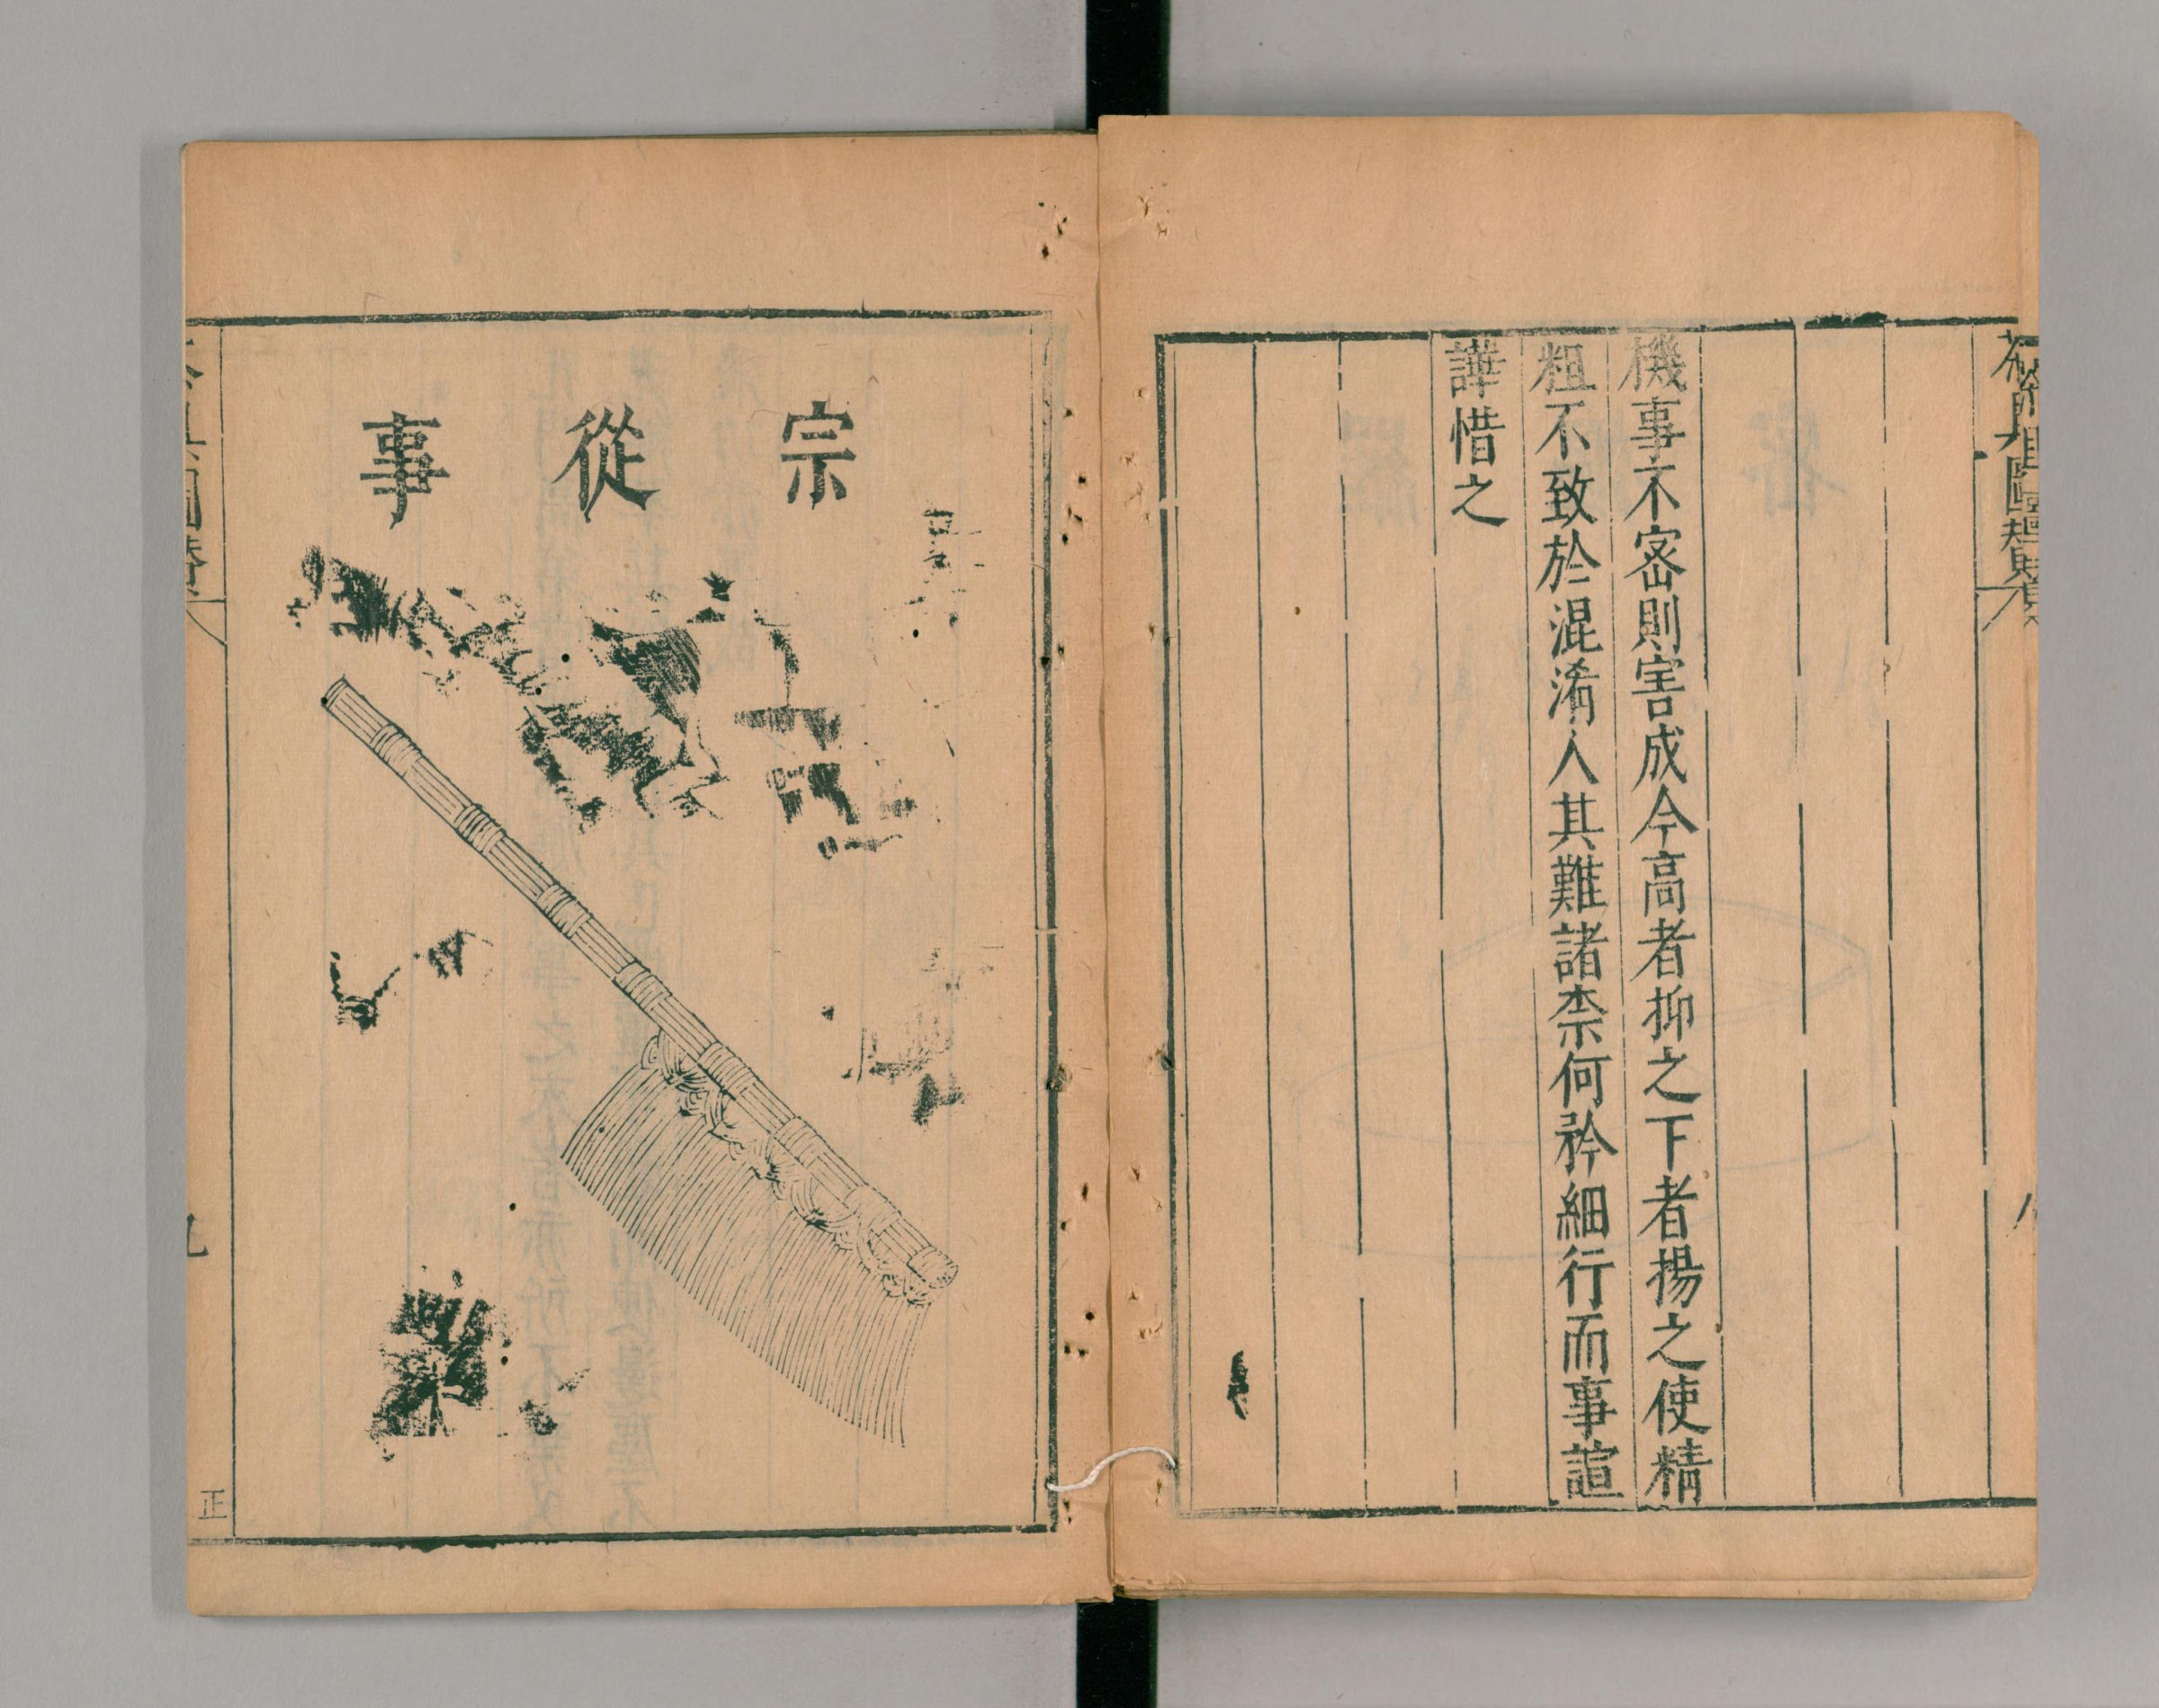 機事不宻則害成今高者抑之下者揚之使精
粗不致於混淆人其難諸柰何矜細行而事諠
譁惜之
宗從事
正